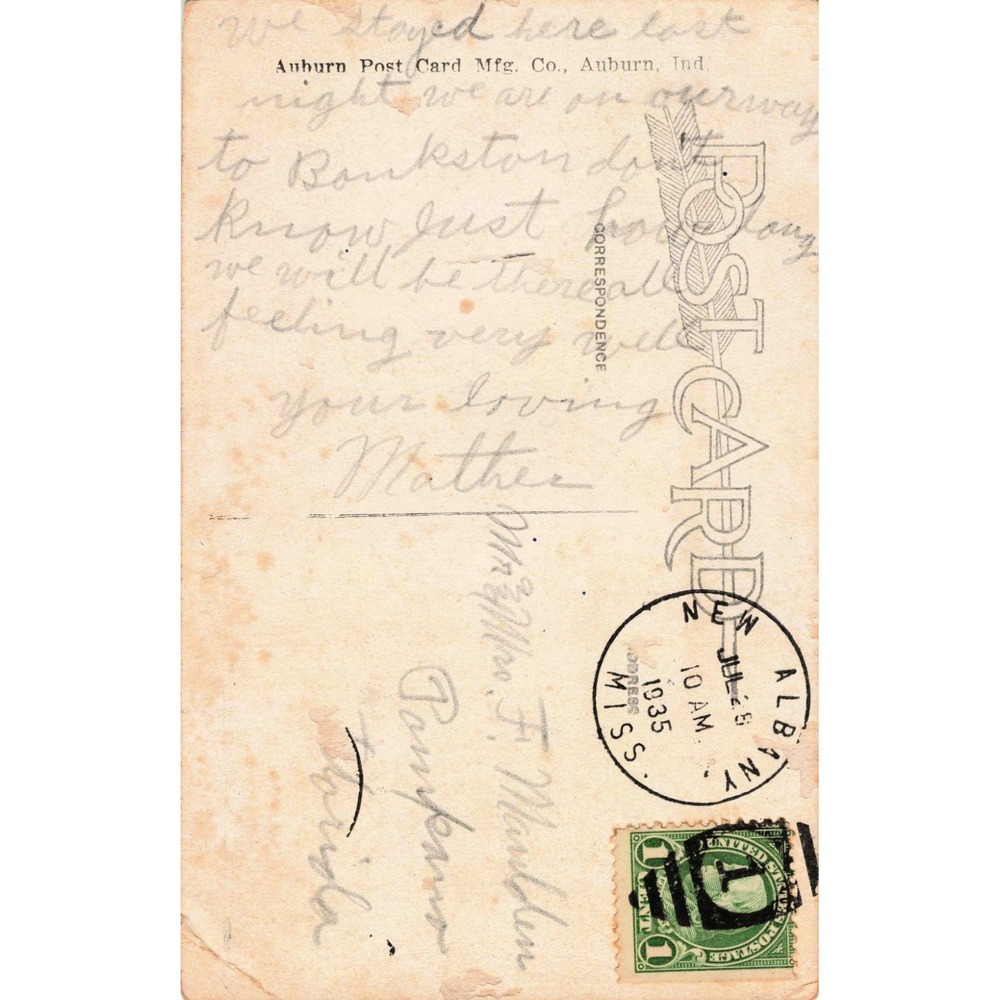 we stayed here last
Auburn Post Card Mfg. Co., Auburn, Ind.
night we are on our way
to Bankston dont
know just how long
we will be there all
feeling very well
your loving
Mother
CORRESPONDENCE
POST CARD
ADDRESS
Mr & Mrs. F. Maulden
Pompano
Florida
NEW ALBANY, MISS.
JUL 28
10 AM
1935
UNITED STATES POSTAGE
1 CENT 1
1